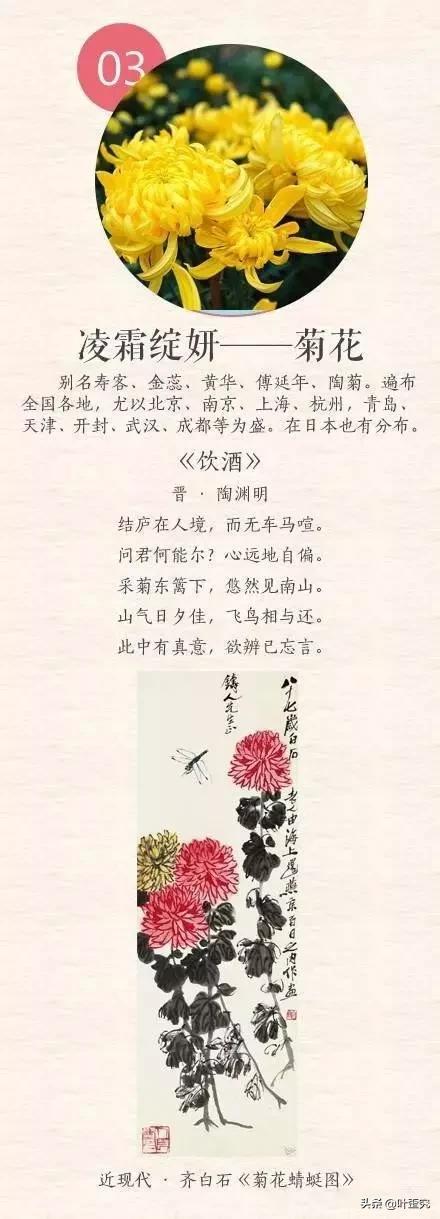 03
凌霜绽妍——菊花
别名寿客、金蕊、黄华、傅延年、陶菊。遍布
全国各地，尤以北京、南京、上海、杭州，青岛、
天津、开封、武汉、成都等为盛。在日本也有分布。
《饮酒》
晋 · 陶渊明
结庐在人境，而无车马喧。
问君何能尔？心远地自偏。
采菊东篱下，悠然见南山。
山气日夕佳，飞鸟相与还。
此中有真意，欲辨已忘言。
八十七岁白石老人由海上还燕京百日之内作画
近现代 · 齐白石《菊花蜻蜓图》
头条@叶歪歪